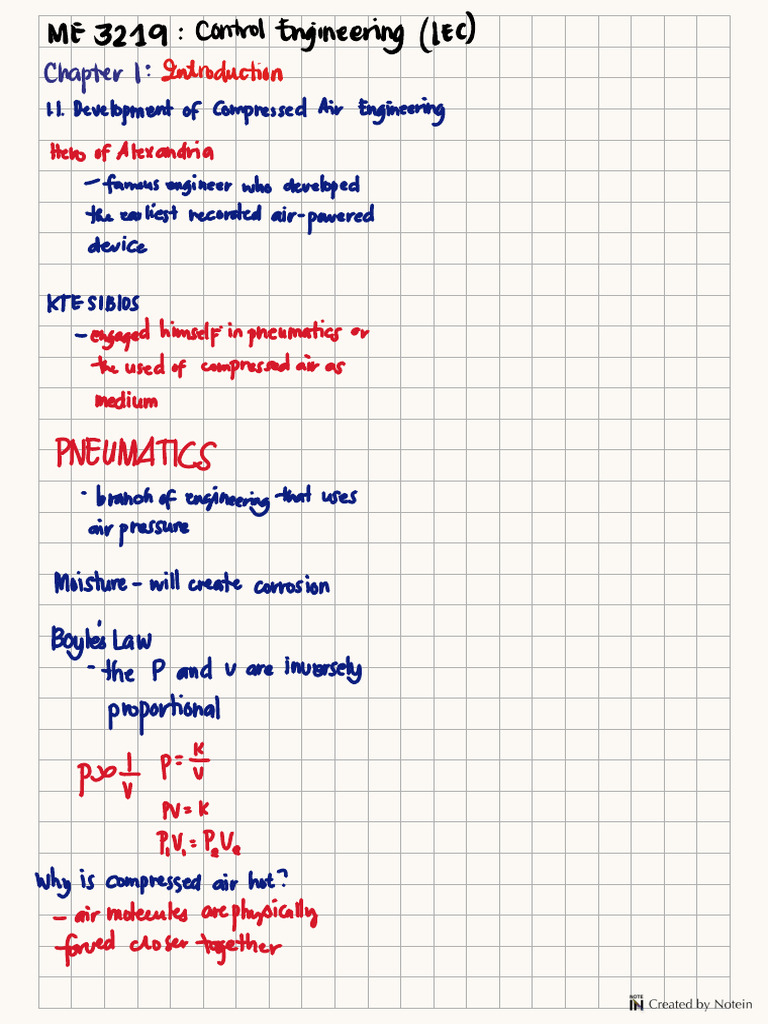 ME 3219 : Control Engineering (LEC)
Chapter 1: Introduction
1.1. Development of Compressed Air Engineering
Hero of Alexandria
- famous engineer who developed
the earliest recorded air-powered
device
KTESIBIOS
- engaged himself in pneumatics or
the used of compressed air as
medium
PNEUMATICS
· branch of engineering that uses
air pressure
Moisture - will create corrosion
Boyle's Law
- the P and V are inversely
proportional
P ∝ 1/V P = K/V
PV = K
P₁V₁ = P₂V₂
Why is compressed air hot?
- air molecules are physically
forved closer together
NOTE IN Created by Notein